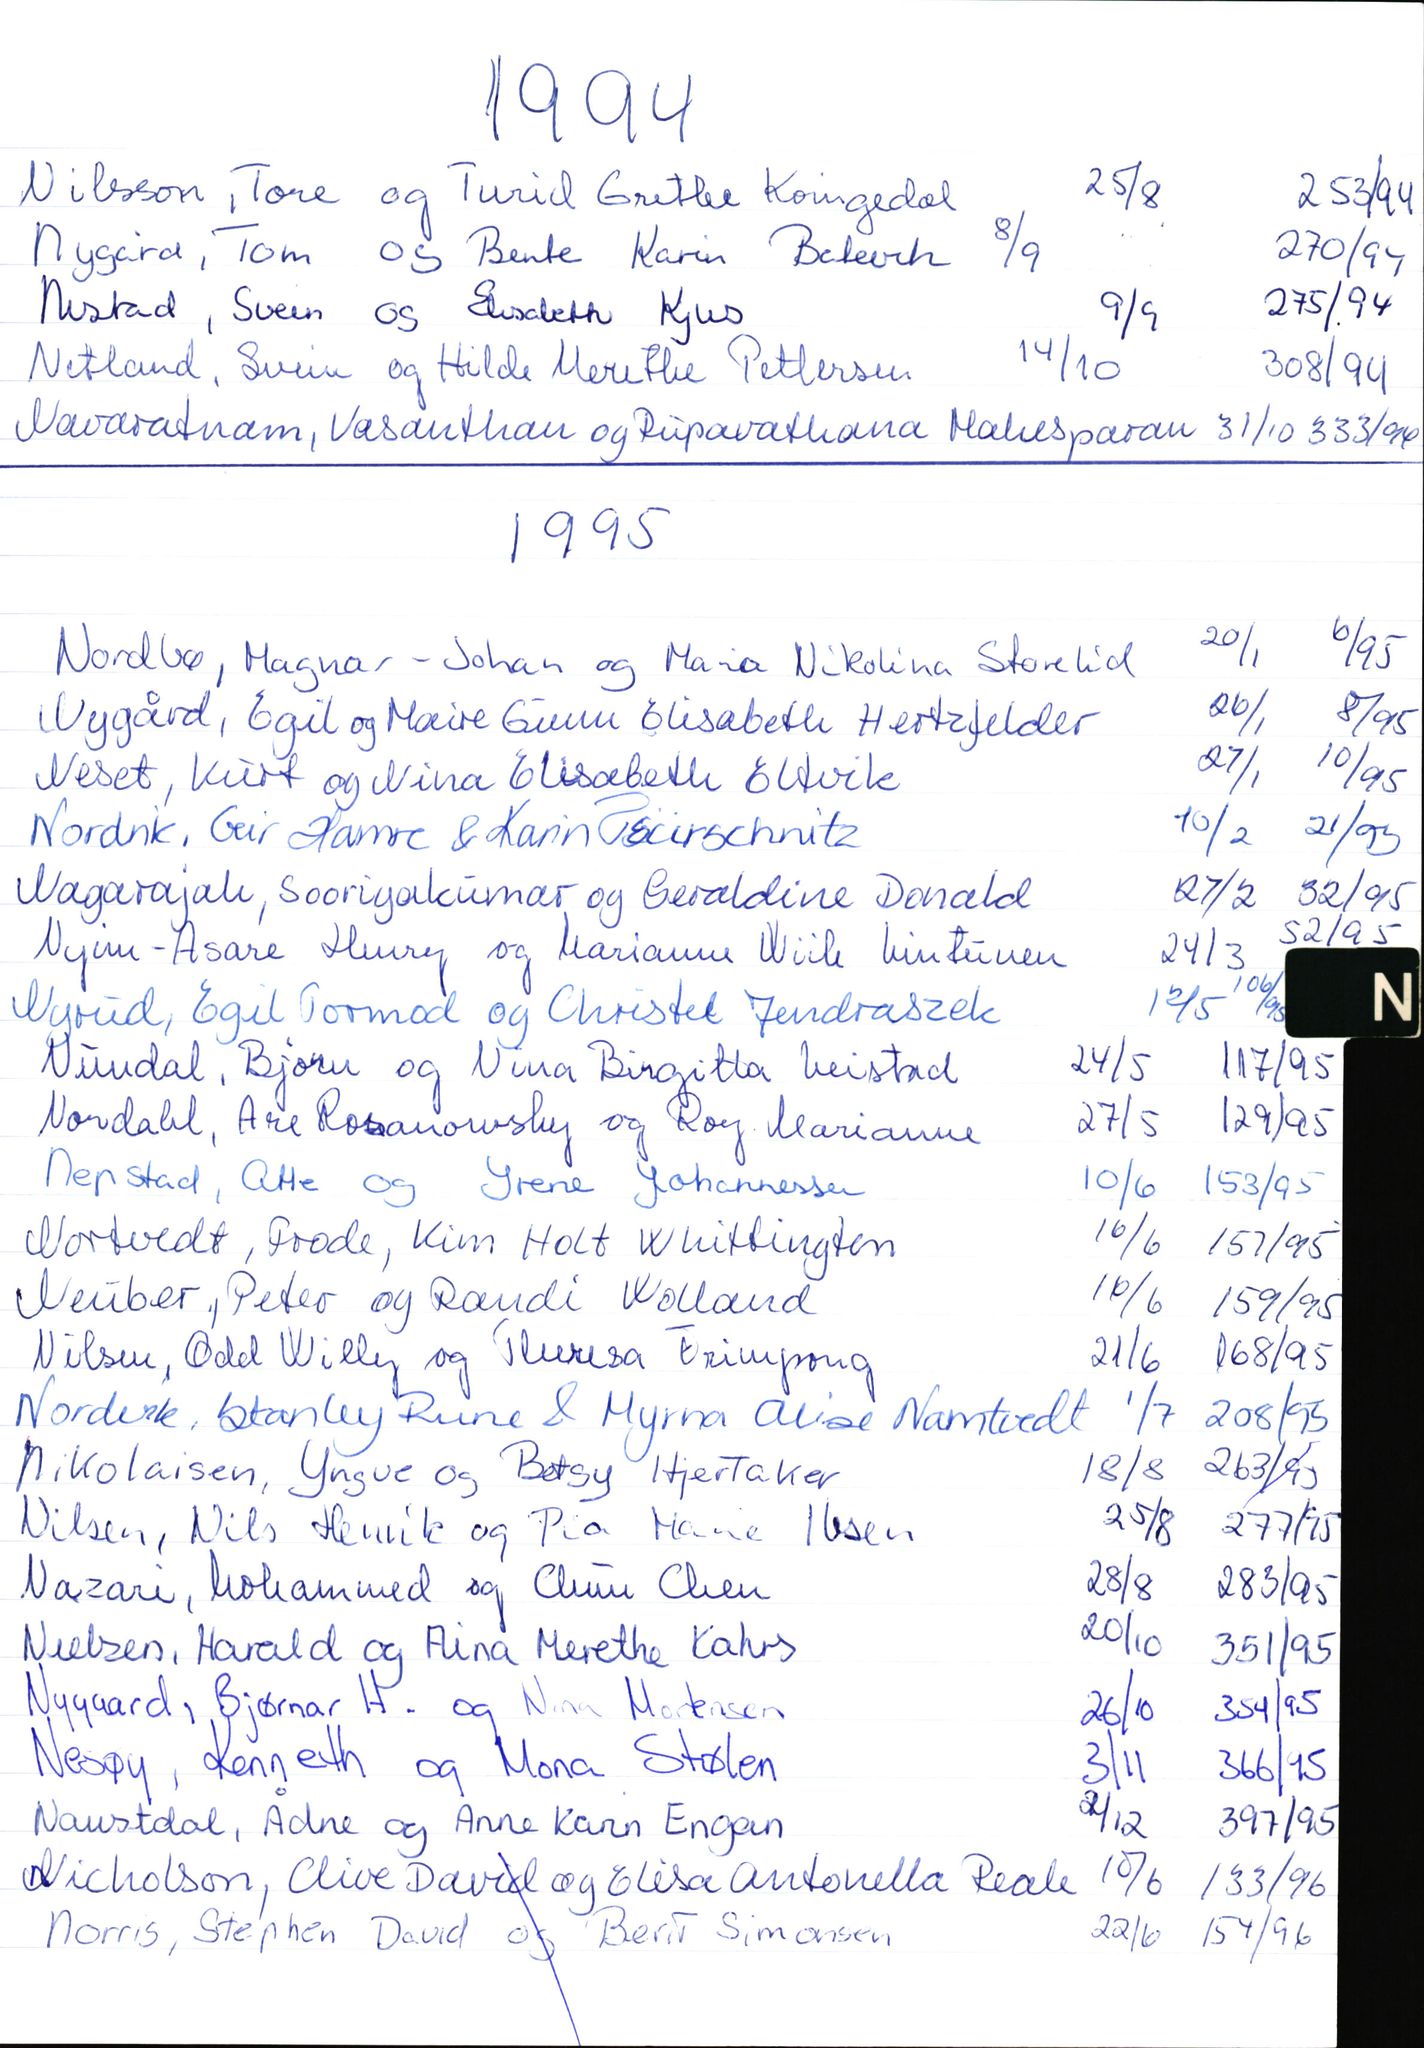 1994
Nilsson, Tore og Turid Grethe Kongedal 25/8 253/94
Nygård, Tom og Bente Karin 8/9 270/94
Nestad, Svein og Elisabeth Kjus 9/9 275/94
Netland, Svein og Hilde Merethe Pettersen 14/10 308/94
Navaratnam, Vasanthan og Rupavathana Mahesparan 31/10 333/94
1995
Nordbø, Magnar-Johan og Maria Nikolina Storelid 20/1 6/95
Nygård, Egil og Maire Gunn Elisabeth Hertzfelder 26/1 8/95
Neset, Kurt og Nina Elisabeth Eltvik 27/1 10/95
Nordvik, Geir Hamre & Karin 10/2 21/95
Nagarajah, Sooriyakumar og Geraldine Donald 27/2 32/95
Nyim-Asare Henry og Marianne Wiik Lintunen 24/3 52/95
N
Nyrud, Egil Tormod og Christel Jendraszek 12/5 106/95
Nundal, Bjørn og Nina Birgitta Leistad 24/5 117/95
Nordahl, Are Rosanowsky og Roy Marianne 27/5 129/95
Nepstad, Atle og Irene Johannessen 10/6 153/95
Nortvedt, Frode, Kim Holt Whittington 16/6 157/95
Neuber, Peter og Randi Wolland 16/6 159/95
Nilsen, Odd Willy og Theresa Frimpong 21/6 168/95
Nordvik, Stanley Rune & Myrna Alise Namtvedt 1/7 208/95
Nikolaisen, Yngve og Betsy Hjertaker 18/8 263/95
Nilsen, Nils Henrik og Pia Marie Ibsen 25/8 277/95
Nazari, Mohammed og Chun Chen 28/8 283/95
Nielsen, Harald og Aina Merethe Kahrs 20/10 351/95
Nygaard, Bjørnar H. og Nina Mortensen 26/10 354/95
Nesøy, Kenneth og Mona Stølen 3/11 366/95
Naustdal, Ådne og Anne Karin Engan /12 397/95
Nicholson, Clive David og Elisa Antonella Reale 15/6 133/96
Norris, Stephen David og Berit Simonsen 22/6 154/96